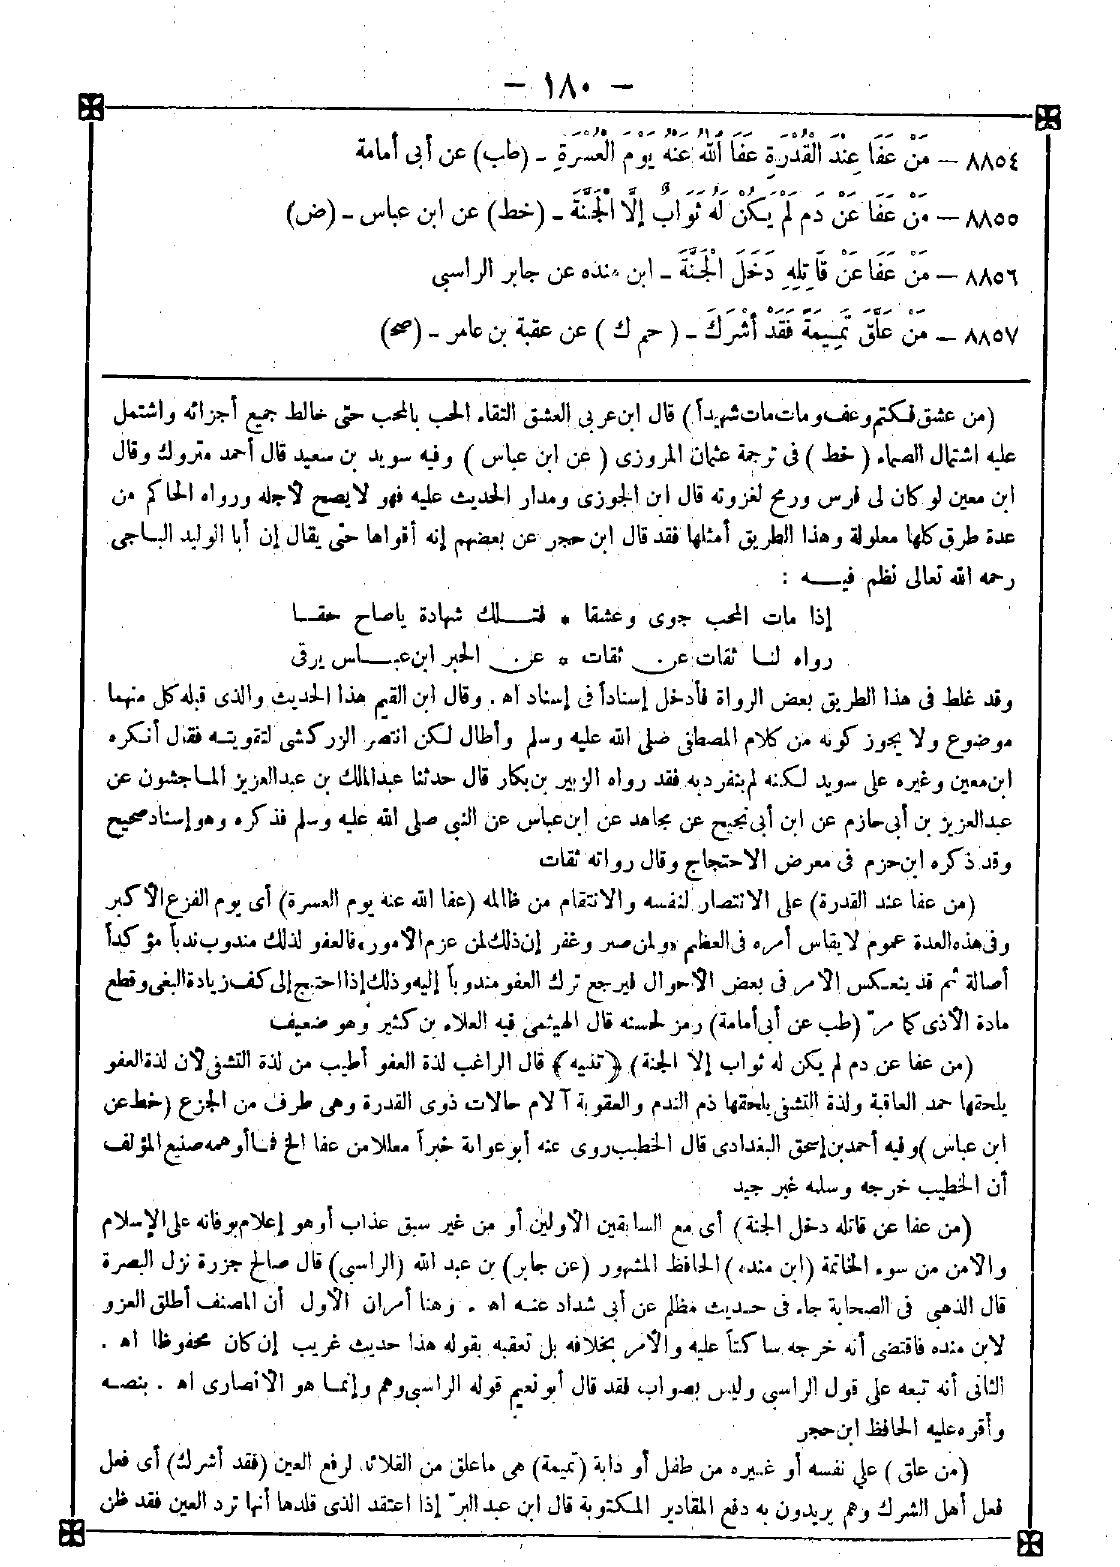 — ١٨٠ —
٨٨٥٤ — مَنْ عَفَا عِنْدَ الْقُدْرَةِ عَفَا اللهُ عَنْهُ يَوْمَ الْعُسْرَةِ ـ (طب) عن أبى أمامة
٨٨٥٥ — مَنْ عَفَا عَنْ دَمٍ لَمْ يَكُنْ لَهُ ثَوَابٌ إِلَّا الْجَنَّةَ ـ (خط) عن ابن عباس ـ (ض)
٨٨٥٦ — مَنْ عَفَا عَنْ قَاتِلِهِ دَخَلَ الْجَنَّةَ ـ ابن منده عن جابر الراسبى
٨٨٥٧ — مَنْ عَلَّقَ تَمِيمَةً فَقَدْ أَشْرَكَ ـ ( حم ك ) عن عقبة بن عامر ـ (صح)
(من عشق فكتم وعف ومات مات شهيداً ) قال ابن عربى العشق التقاء الحب بالمحب حتى خالط جميع أجزائه واشتمل
عليه اشتمال الصماء ( خط ) فى ترجمة عثمان المروزى ( عن ابن عباس ) وفيه سويد بن سعيد قال أحمد متروك وقال
ابن معين لو كان لى فرس ورمح لغزوته قال ابن الجوزى ومدار الحديث عليه فهو لا يصح لأجله ورواه الحاكم من
عدة طرق كلها معلولة وهذا الطريق أمثلها فقد قال ابن حجر عن بعضهم إنه أقواها حتى يقال إن أبا الوليد الباجى
رحمه الله تعالى نظم فيــه :
إذا مات المحب جوى وعشقا * فتــلك شهادة ياصاح حقــا
رواه لنــا ثقات عن ثقات * عن الحبر ابن عبــاس يرقى
وقد غلط فى هذا الطريق بعض الرواة فأدخل إسناداً فى إسناد اه . وقال ابن القيم هذا الحديث والذى قبله كل منهما
موضوع ولا يجوز كونه من كلام المصطفى صلى الله عليه وسلم وأطال لكن انتصر الزركشى لتقويتــه فقال أنكره
ابن معين وغيره على سويد لكنه لم يتفرد به فقد رواه الزبير بن بكار قال حدثنا عبد الملك بن عبد العزيز الماجشون عن
عبد العزيز بن أبى حازم عن ابن أبى نجيح عن مجاهد عن ابن عباس عن النبى صلى الله عليه وسلم فذكره وهو إسناد صحيح
وقد ذكره ابن حزم فى معرض الاحتجاج وقال رواته ثقات
(من عفا عند القدرة) على الانتصار لنفسه والانتقام من ظالمه (عفا الله عنه يوم العسرة) أى يوم الفزع الأكبر
وفى هذه العدة عموم لا يقاس أمره فى العظم «ولمن صبر وغفر إن ذلك لمن عزم الأمور» فالعفو لذلك مندوب ندباً مؤكداً
أصالة ثم قد ينعكس الأمر فى بعض الأحوال فيرجع ترك العفو مندوباً إليه وذلك إذا احتيج إلى كف زيادة البغى وقطع
مادة الأذى كما مرّ (طب عن أبى أمامة) رمز لحسنه قال الهيثمى فيه العلاء بن كثير وهو ضعيف
(من عفا عن دم لم يكن له ثواب إلا الجنة) ﴿ تنبيه ﴾ قال الراغب لذة العفو أطيب من لذة التشفى لأن لذة العفو
يلحقها حمد العاقبة ولذة التشفى يلحقها ذم الندم والعقوبة آلام حالات ذوى القدرة وهى طرف من الجزع (خط عن
ابن عباس ) وفيه أحمد بن إسحق البغدادى قال الخطيب روى عنه أبو عوانة خبراً معللا من عفا الخ فما أوهمه صنيع المؤلف
أن الخطيب خرجه وسلمه غير جيد
(من عفا عن قاتله دخل الجنة) أى مع السابقين الأولين أو من غير سبق عذاب أو هو إعلام بوفاته على الإسلام
والأمن من سوء الخاتمة (ابن منده ) الحافظ المشهور (عن جابر) بن عبد الله (الراسبى) قال صالح جزرة نزل البصرة
قال الذهبى فى الصحابة جاء فى حديث مظلم عن أبى شداد عنــه اه . وهنا أمران الأول أن المصنف أطلق العزو
لابن منده فاقتضى أنه خرجه ساكتاً عليه والأمر بخلافه بل تعقبه بقوله هذا حديث غريب إن كان محفوظا اه .
الثانى أنه تبعه على قول الراسبى وليس بصواب فقد قال أبو نعيم قوله الراسبى وهم وإنمــا هو الأنصارى اه . بنصــه
وأقره عليه الحافظ ابن حجر
(من علق ) على نفسه أو غيره من طفل أو دابة (تميمة) هى ما علق من القلائد لرفع العين (فقد أشرك) أى فعل
فعل أهل الشرك وهم يريدون به دفع المقادير المكتوبة قال ابن عبد البرّ إذا اعتقد الذى قلدها أنها ترد العين فقد ظن